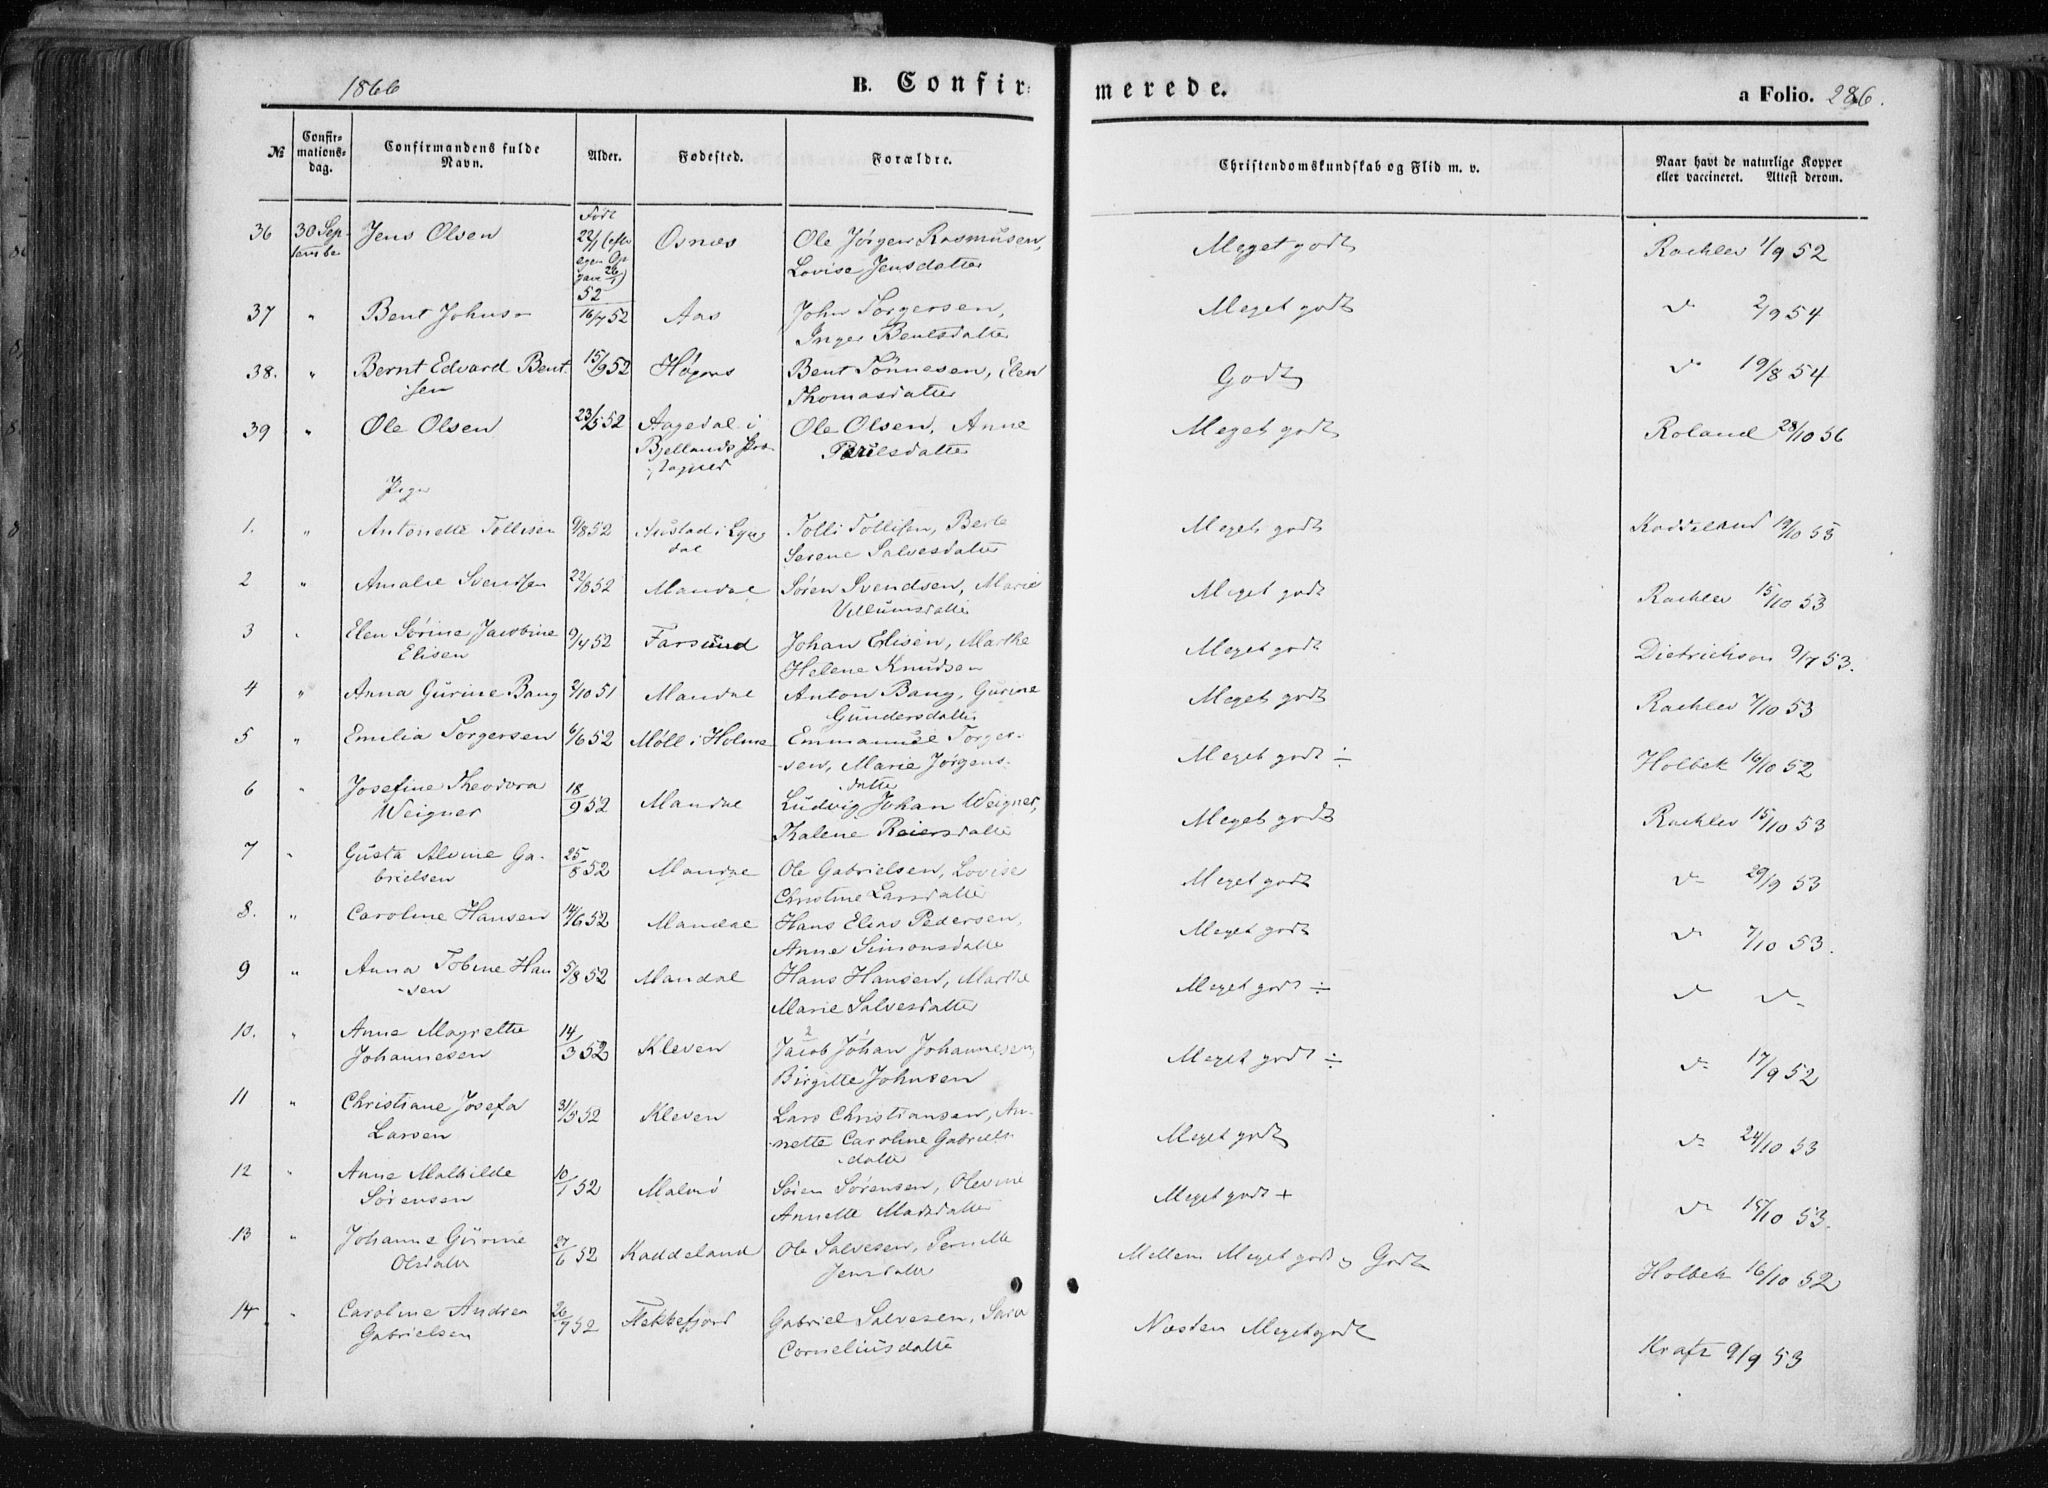 1866 B. Confirmerede. a Folio. 286.
№ Confirmationsdag. Confirmandens fulde Navn. Alder. Fødested. Forældre. Christendomskundskab og Flid m. v. Naar havt de naturlige Kopper eller vaccineret. Attest derom.
Født
36 30 Sep- Jens Olsen 22/1 Osnæs Ole Jørgen Rasmusen, Meget godt Rachlev 1/9 52
tember egen Op Lovise Jensdatter
52
37 " Bent Johns 16/7 52 Aas John Torgersen, Meget godt d° 2/9 54
Inger Bentsdatter
38. " Bernt Edvard Bent- 15/9 52 Høgaas Bent Tønnesen, Elen Godt d° 19/8 54
sen Thomasdatter
39 " Ole Olsen 23/5 52 Aagedal i Ole Olsen, Anne Meget godt Roland 28/10 56
Bjellands Præ- Poulsdatter
stegjeld
Piger
1. " Antonette Tollisen 9/8 52 i Lyng- Tolli Tollisen, Berte Meget godt Kaddeland 19/10 53
dal Serene Salvesdatter
2 " Amalie Svendsen 22/8 52 Mandal Søren Svendsen, Marie Meget godt Rachlev 15/10 53
Villumsdatter
3 " Elen Sørine Jacobine 9/4 52 Farsund Johan Elisen, Marthe Meget godt Dietrichson 9/7 53.
Elisen Helene Knudsen
4 " Anna Gurine Bang 2/10 51 Mandal Anton Bang, Gurine Meget godt Rachlev 7/10 53
Gundersdatter
5 " Emilia Torgersen 6/6 52 Møll i Holme Emmanuel Torger- Meget godt ÷ Holbek 16/10 52
-sen, Marie Jørgens-
datter
6 " Josefine Theodora 18/9 52 Mandal Ludvig Johan Weigner, Meget godt Rachlev 15/10 53
Weigner Kalene Reiersdatter
7 " Gusta Alvine Ga- 25/8 52 Mandal Ole Gabrielsen, Lovise Meget godt d° 29/9 53
brielsen Christine Larsdatter
8. " Caroline Hansen 14/6 52 Mandal Hans Elias Pedersen, Meget godt d° 7/10 53.
Anne Simonsdatter
9 " Anna Tobine Han- 5/8 52 Mandal Hans Hansen, Marthe Meget godt ÷ d° d°
-sen Marie Salvesdatter
10. " Anne Magrethe 14/3 52 Kleven Jacob Johan Johannesen, Meget godt ÷ d° 17/9 52
Johannesen Birgitte Johnsen
11 " Christiane Josefa 31/5 52 Kleven Lars Christiansen, An- Meget godt d° 24/10 53
Larsen -nette Caroline Gabriels-
datter
12 " Anne Mathilde 10/1 52 Malmø Søren Sørensen, Olevine Meget godt + d° 15/10 53.
Sørensen Annette Madsdatter
13 " Johanne Gurine 27/6 52 Kaddeland Ole Salvesen, Pernille Mellem Meget godt og Godt Holbek 16/10 52
Olsdatter Jensdatter
14 " Caroline Andrea 26/7 52 Flekkefjord Gabriel Salvesen, Sara Næsten Meget godt Kraft 9/9 53
Gabrielsen Corneliusdatter